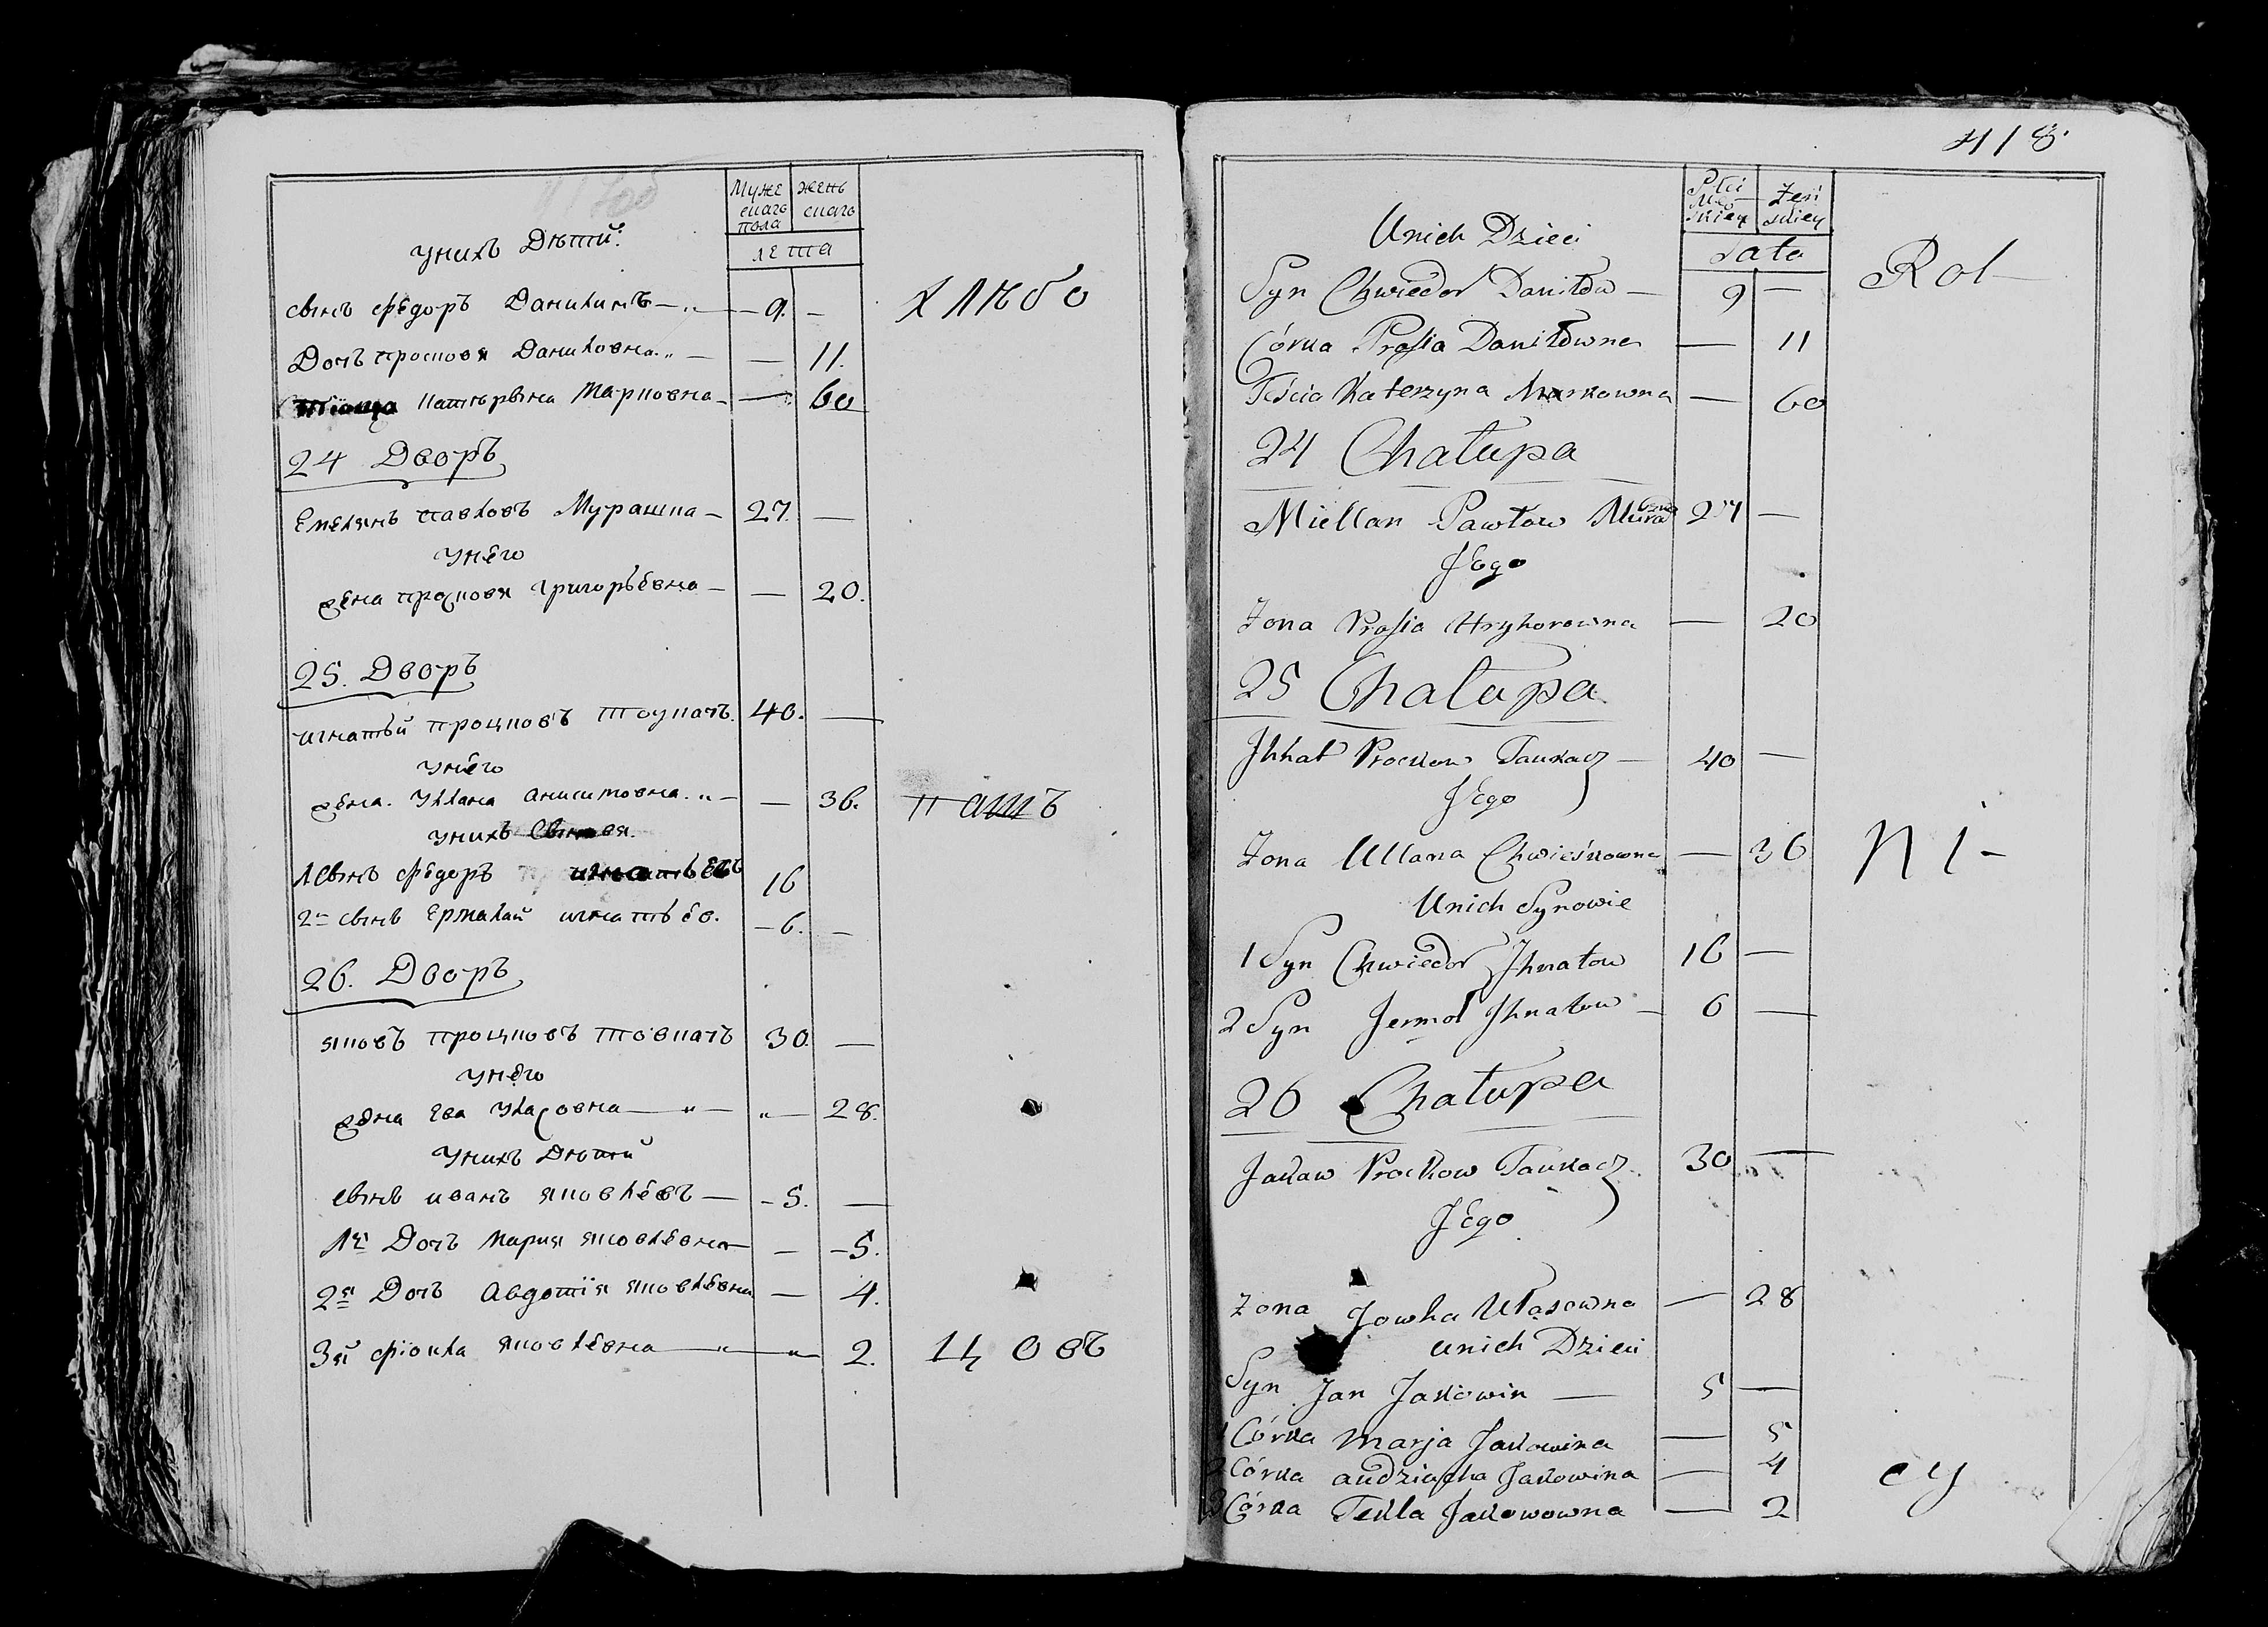 Муже
скаго
пола
жень
скаго
лета
унихъ Дѣти:
сынъ Федоръ Данилинъ — 9. —
Дочь Просковя Даниловна — — 11.
тiоща катърына Марковна — — 60
24 Дворъ
Емелянъ павловъ Мурашка — 27. —
унего
жена просковя григорьевна — — 20.
25. Дворъ
игнатый процковъ тоукачъ. 40. —
унего
жена. Уллана аникимовна. — — 36.
унихъ Сыновя.
1 Сынъ Федоръ игнатьевъ 16
2й сынъ Ермалай игнатьев. — 6. —
26. Дворъ
яковъ процковъ товкачъ 30. —
унего
жена Ева Уласовна — — 28.
Унихъ Дѣтй
сынъ иванъ яковлевъ — 5. —
1я Дочъ Мария яковлевна — — 5.
2я Дочъ Авдотiя яковлевна — 4.
3я фiокла яковлевна — — 2.
хлѣбо
пашъ
цовъ
418
Płci
Mę
skiey
Żeń
skiey
Lata
Unich Dzieci
Syn Chwiedor Daniłow — 9 —
Córka Prosia Daniłowna — 11
Teścia Katerzyna Markowna — 60
24 Chałupa
Miellan Pawłow Muraszka 27 —
JEgo
Żona Prosia Hryhorowna — 20
25 Chałupa
Jhnat Prockow Taukacz — 40 —
JEgo
Żona Ullana Chwieśkowna — 36
Unich Synowie
1 Syn Chwiedor Jhnatow 16 —
2 Syn Jermoł Jhnatow — 6 —
26 Chałupa
Jakaw Prockow Taukacz 30 —
JEgo
żona Jowha Ułasowna — 28
unich Dzieci
Syn Jan Jakowin — 5 —
1 Córka Marja Jakowina — 5
2 Córka audziucha Jakowina — 4
3 Córka Tekla Jakowowna — 2
Rol—
ni—
cy